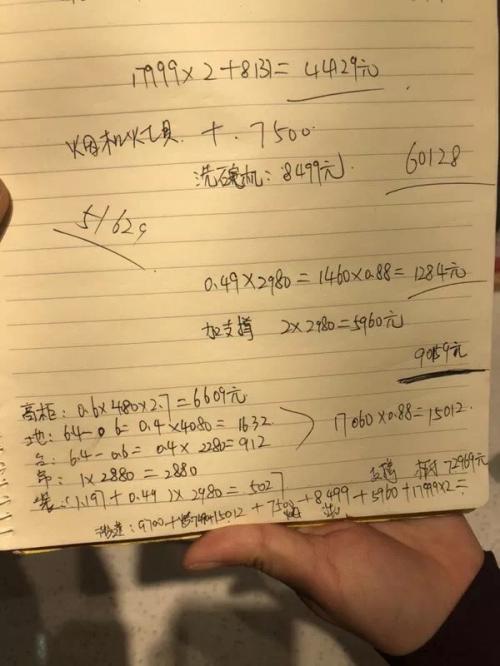 17999×2+8131=44129元
烟机灶具 +.7500
洗碗机:8499元
60128
5162.
0.49×2980=1460×0.88=1284元
加支撑 2×2980=5960元
9059元
高柜:0.6×4080×2.7=6609元
地:6.4-0.6=0.4×4080=1632
台:6.4-0.6=0.4×2280=912
吊:1×2880=2880
1.197+0.49)×2980=5027
17060×0.88=15012
72969元
9700+
15012+7500+8499+5960+17999×2=